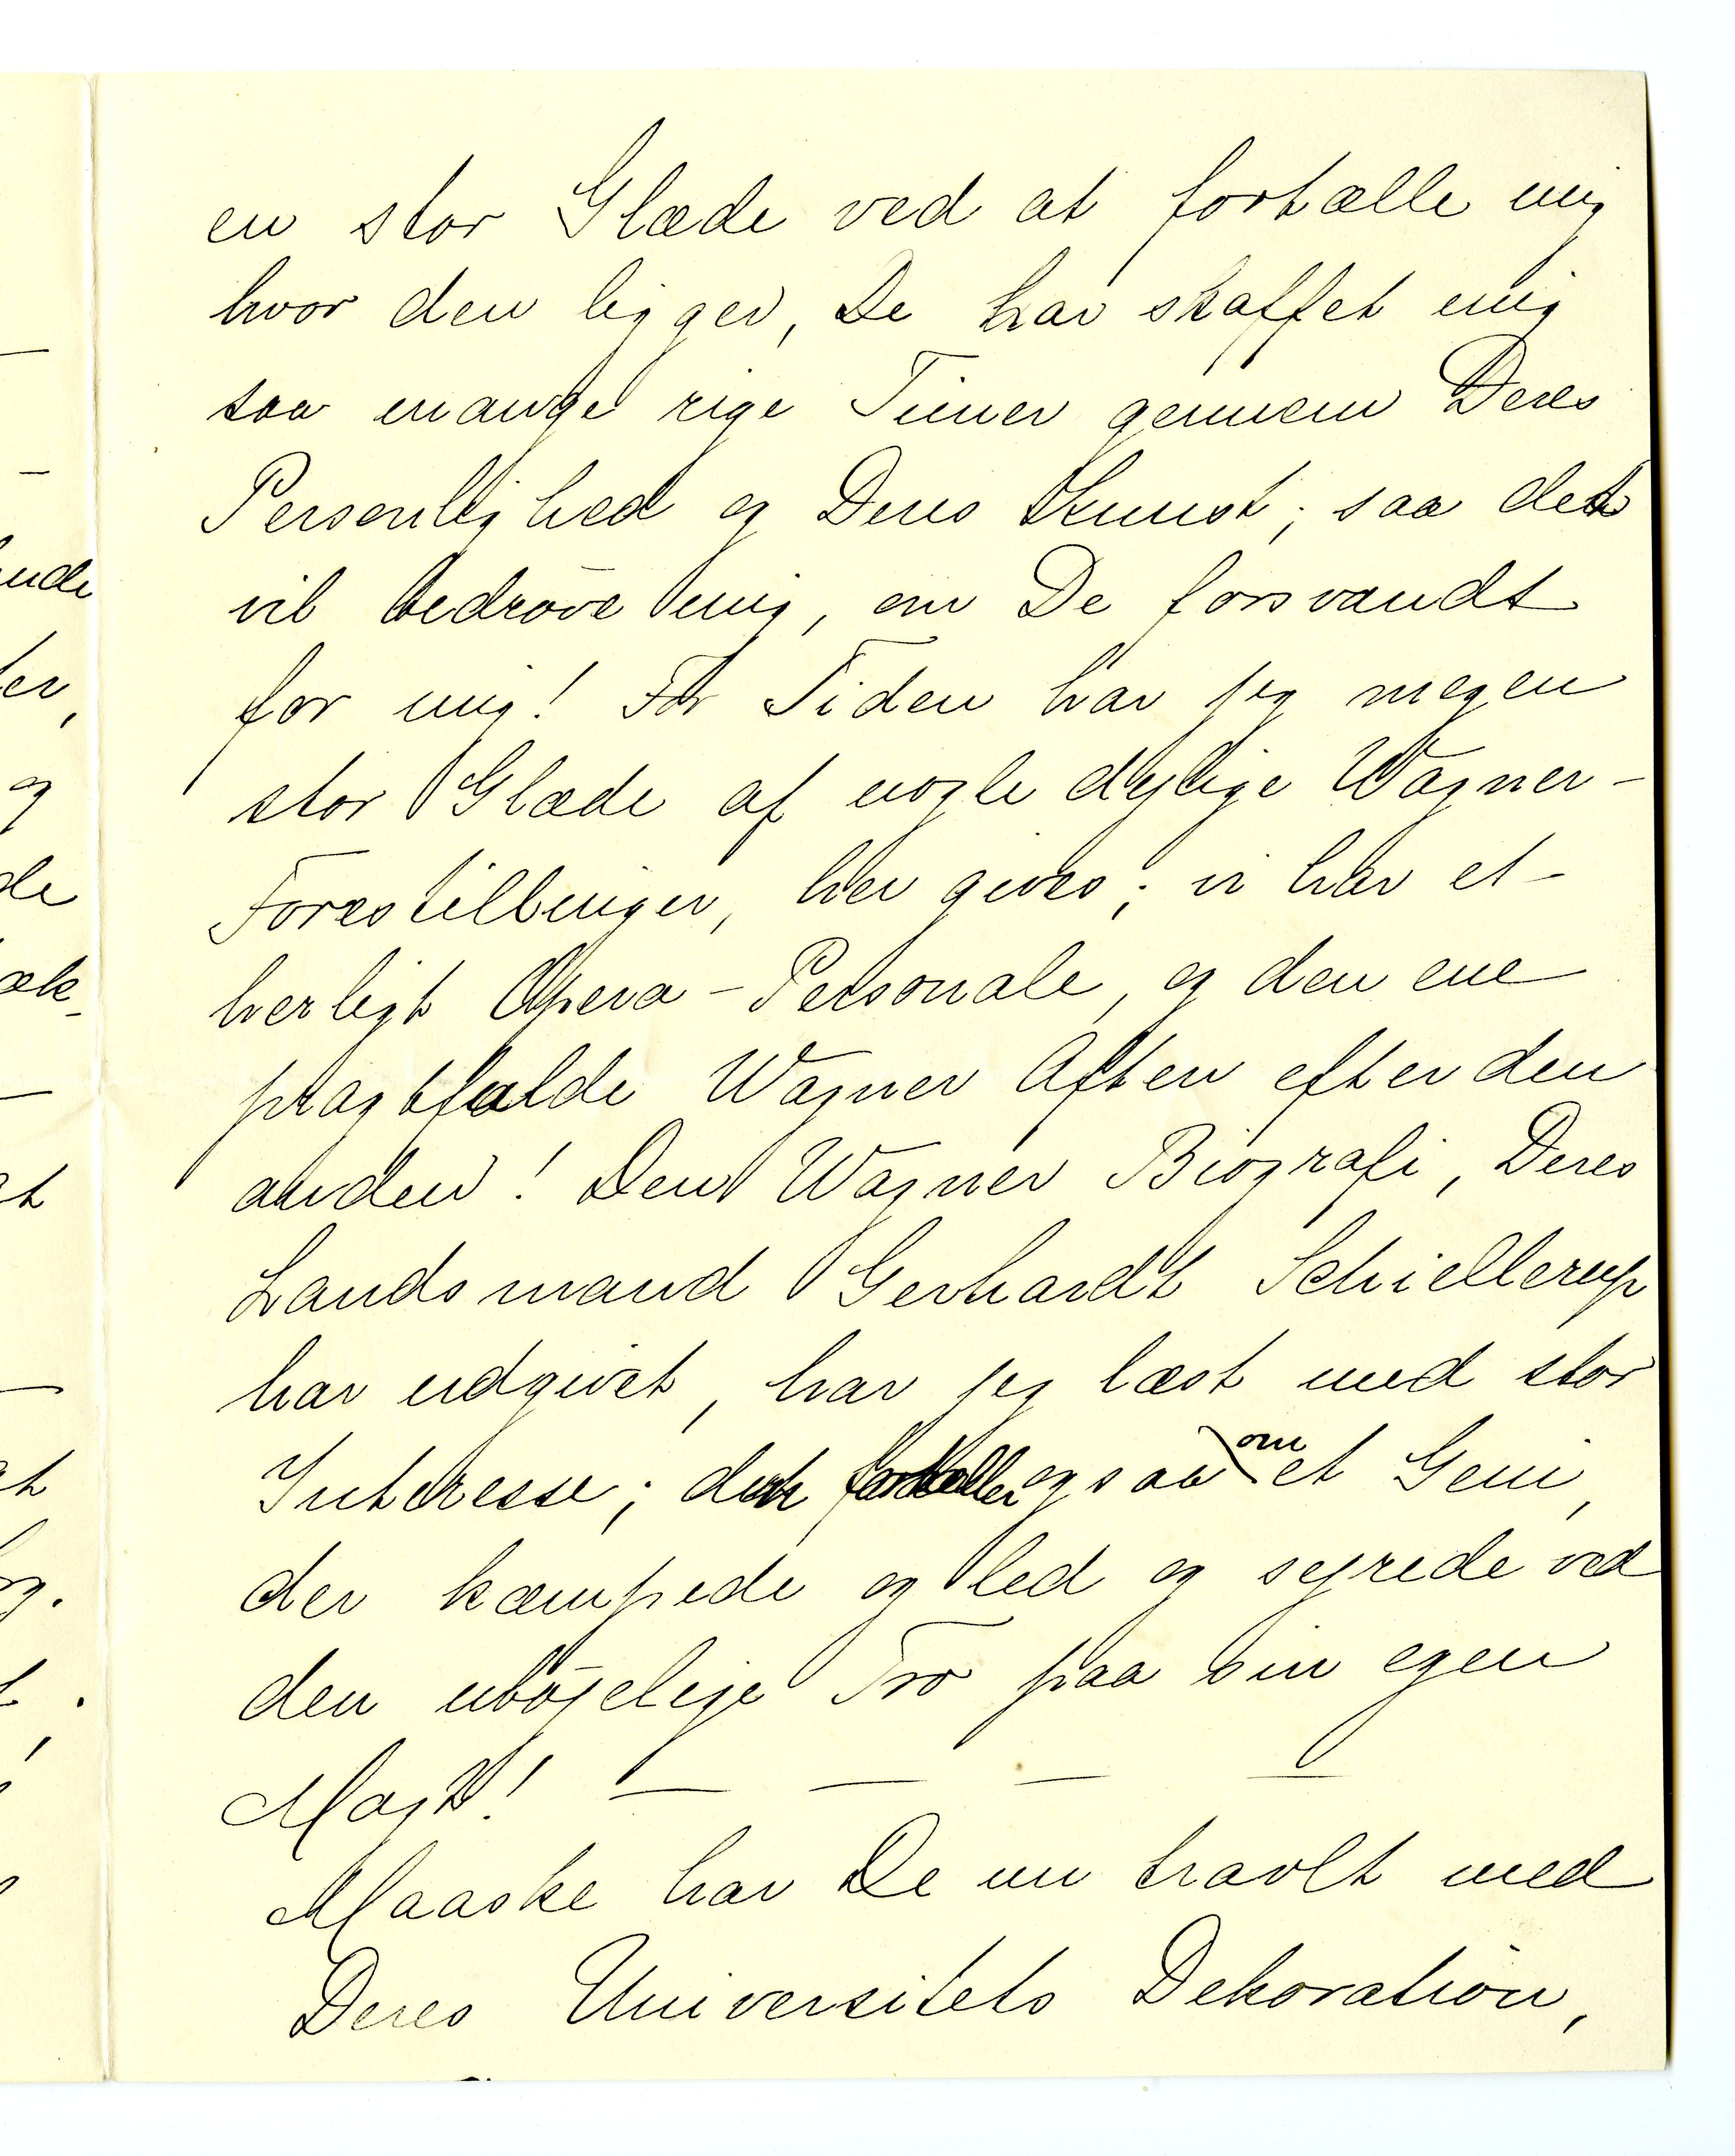 en stor Glæde ved at fortælle mig
hvor den ligger, De har skaffet mig
saa mange rige Timer gennem Deres
Personlighed og Deres Kunst; saa det
vil bedrøve mig, om De forsvandt
for mig! For Tiden har jeg megen
stor Glæde af nogle dejlige Wagner-
Forestillinger, her gives; vi har et
herligt Opera-Personale, og den ene
pragtfulde Wagner Aften efter den
anden! Den Wagner Biografi, Deres
Landsmand Gerhardt Schiellerup
har udgivet, har jeg læst med stor
Interesse; den fortæller ogsaa om et Geni,
der kæmpede og led og sejrede ved
den ubøjelige Tro paa sin egen
Magt! — — — —
Maaske har De nu travlt med
Deres Universitets Dekoration,